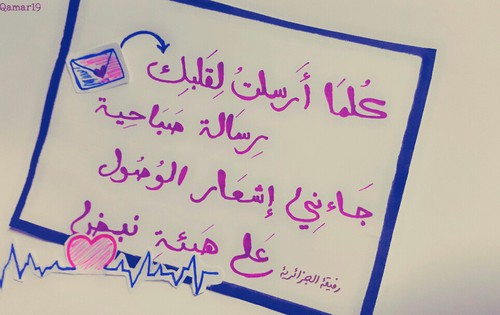 Qamar19
كُلمَا أَرسلتُ لِقَلبِكِ
رِسَالة صَبَاحِية
جَاءنِي إشعَار الوُصُول
عَلى هَيئةِ نبض
رفيقة الجزائرية